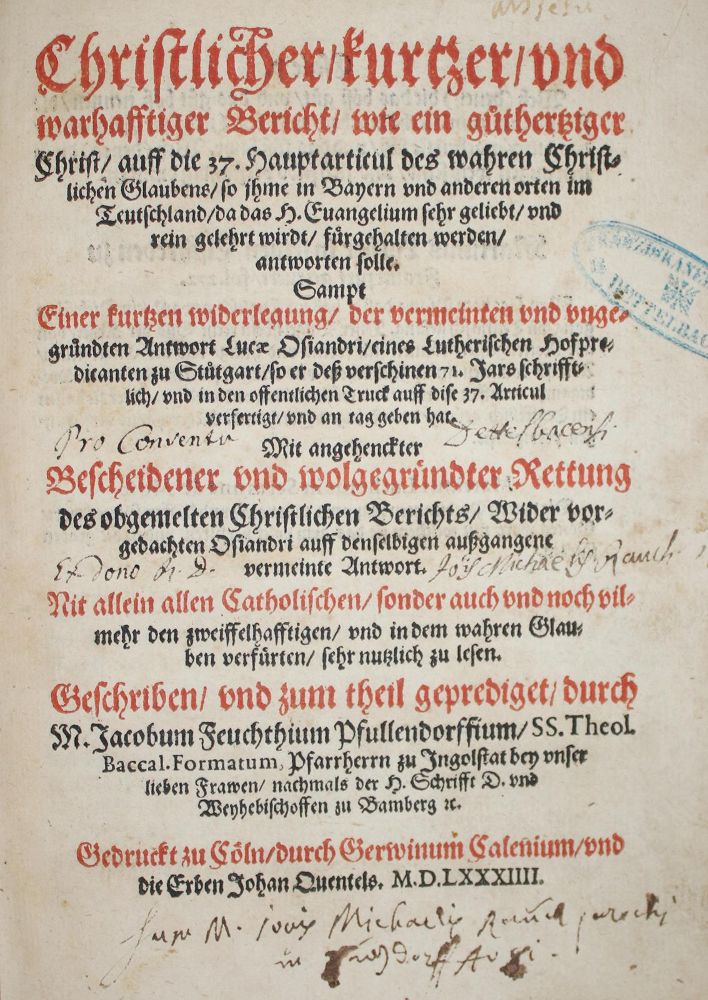 Christlicher/kurtzer/vnd
warhafftiger Bericht/ wie ein güthertziger
Christ/ auff die 37. Hauptarticul des wahren Christ-
lichen Glaubens/so jhme in Bayern vnd anderen orten im
Teutschland/da das H. Euangelium sehr geliebt/vnd
rein gelehrt wirdt/ fürgehalten werden/
antworten solle.
Sampt
Einer kurtzen widerlegung/ der vermeinten vnd vnge-
gründten Antwort Lucæ Osiandri/eines Lutherischen Hofpre-
dicanten zu Stütgart/so er deß verschinen 71. Jars schrifft-
lich/ vnd in den offentlichen Truck auff dise 37. Articul
verfertigt/vnd an tag geben hat.
Pro Conventu Dettelbacensi
Mit angehenckter
Bescheidener vnd wolgegründter Rettung
des obgemelten Christlichen Berichts/ Wider vor-
gedachten Osiandri auff denselbigen außgangene
vermeinte Antwort.
Ex dono R. D. Michaelis Rauch
Nit allein allen Catholischen/ sonder auch vnd noch vil-
mehr den zweiffelhafftigen/ vnd in dem wahren Glau-
ben verfürten/ sehr nutzlich zu lesen.
Geschriben/ vnd zum theil geprediget/durch
M. Jacobum Feuchthium Pfullendorffium/ SS. Theol.
Baccal. Formatum, Pfarrherrn zu Ingolstat bey vnser
lieben Frawen/ nachmals der H. Schrifft D. vnd
Weyhebischoffen zu Bamberg ꝛc.
Gedruckt zu Cöln/durch Gerwinum Calenium/vnd
die Erben Johan Quentels. M.D.LXXXIIII.
Sum M. Michaelis Rauch parochi
in
FRANZISKANER
DETTELBACH